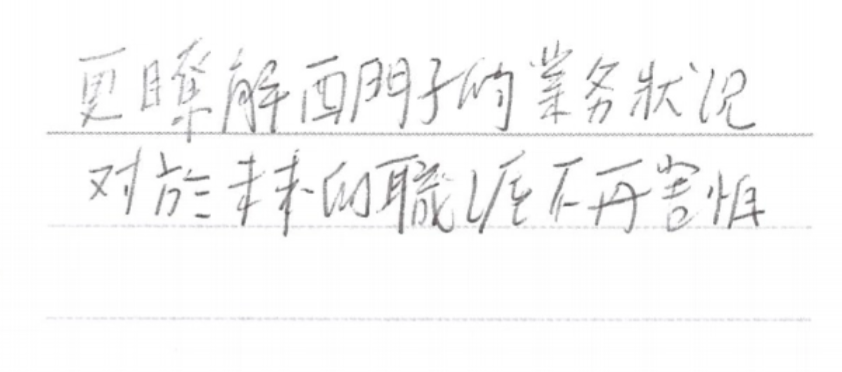 更瞭解西門子的業务狀況
对於未来的職涯不再害怕